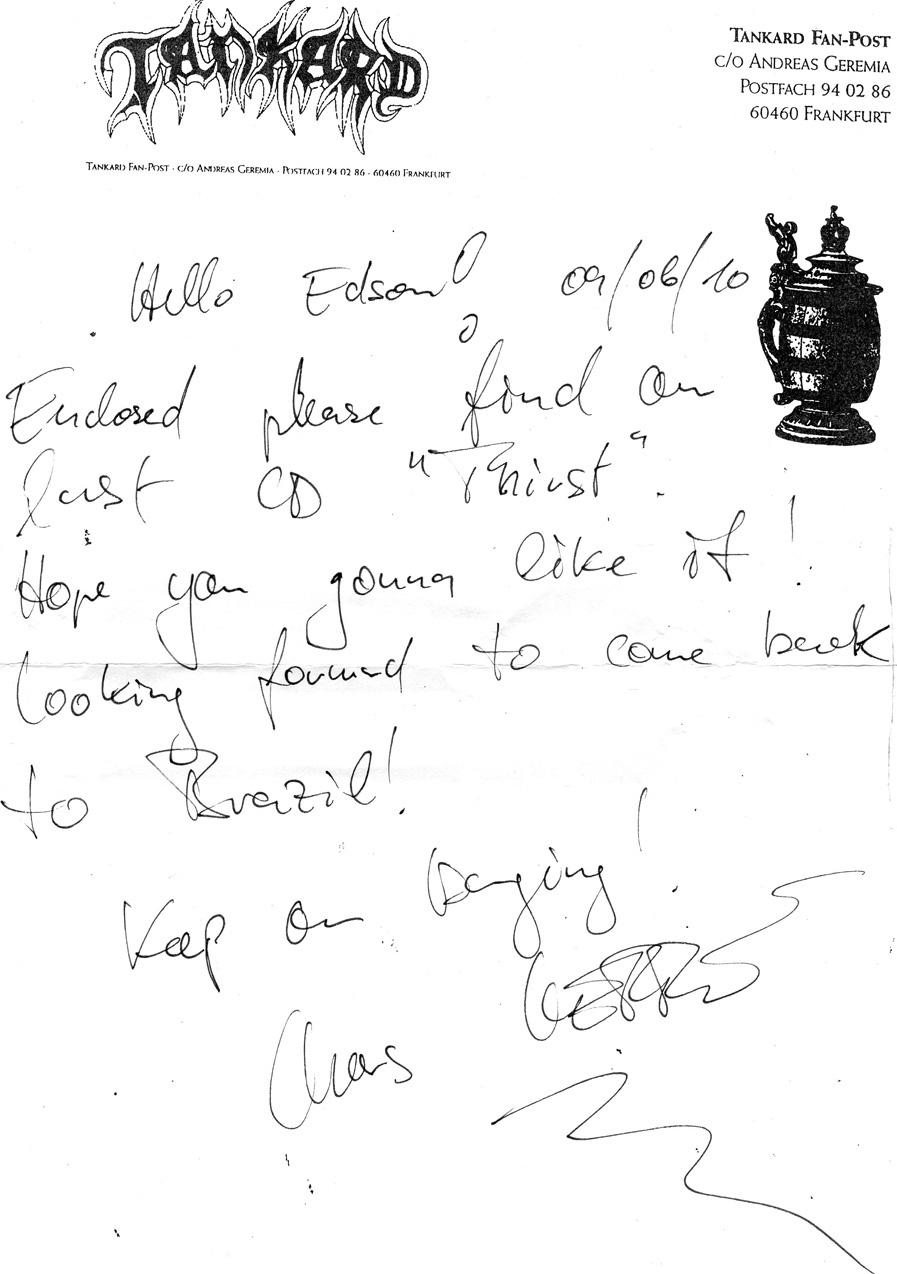 TANKARD
TANKARD FAN-POST
C/O ANDREAS GEREMIA
POSTFACH 94 02 86
60460 FRANKFURT
TANKARD FAN-POST · C/O ANDREAS GEREMIA · POSTFACH 94 02 86 · 60460 FRANKFURT
Hello Edson! 09/06/10
Enclosed please find our
last CD "Thirst".
Hope you gonna like it!
Looking forward to come back
to Brazil!
Keep on banging!
Cheers GERRE